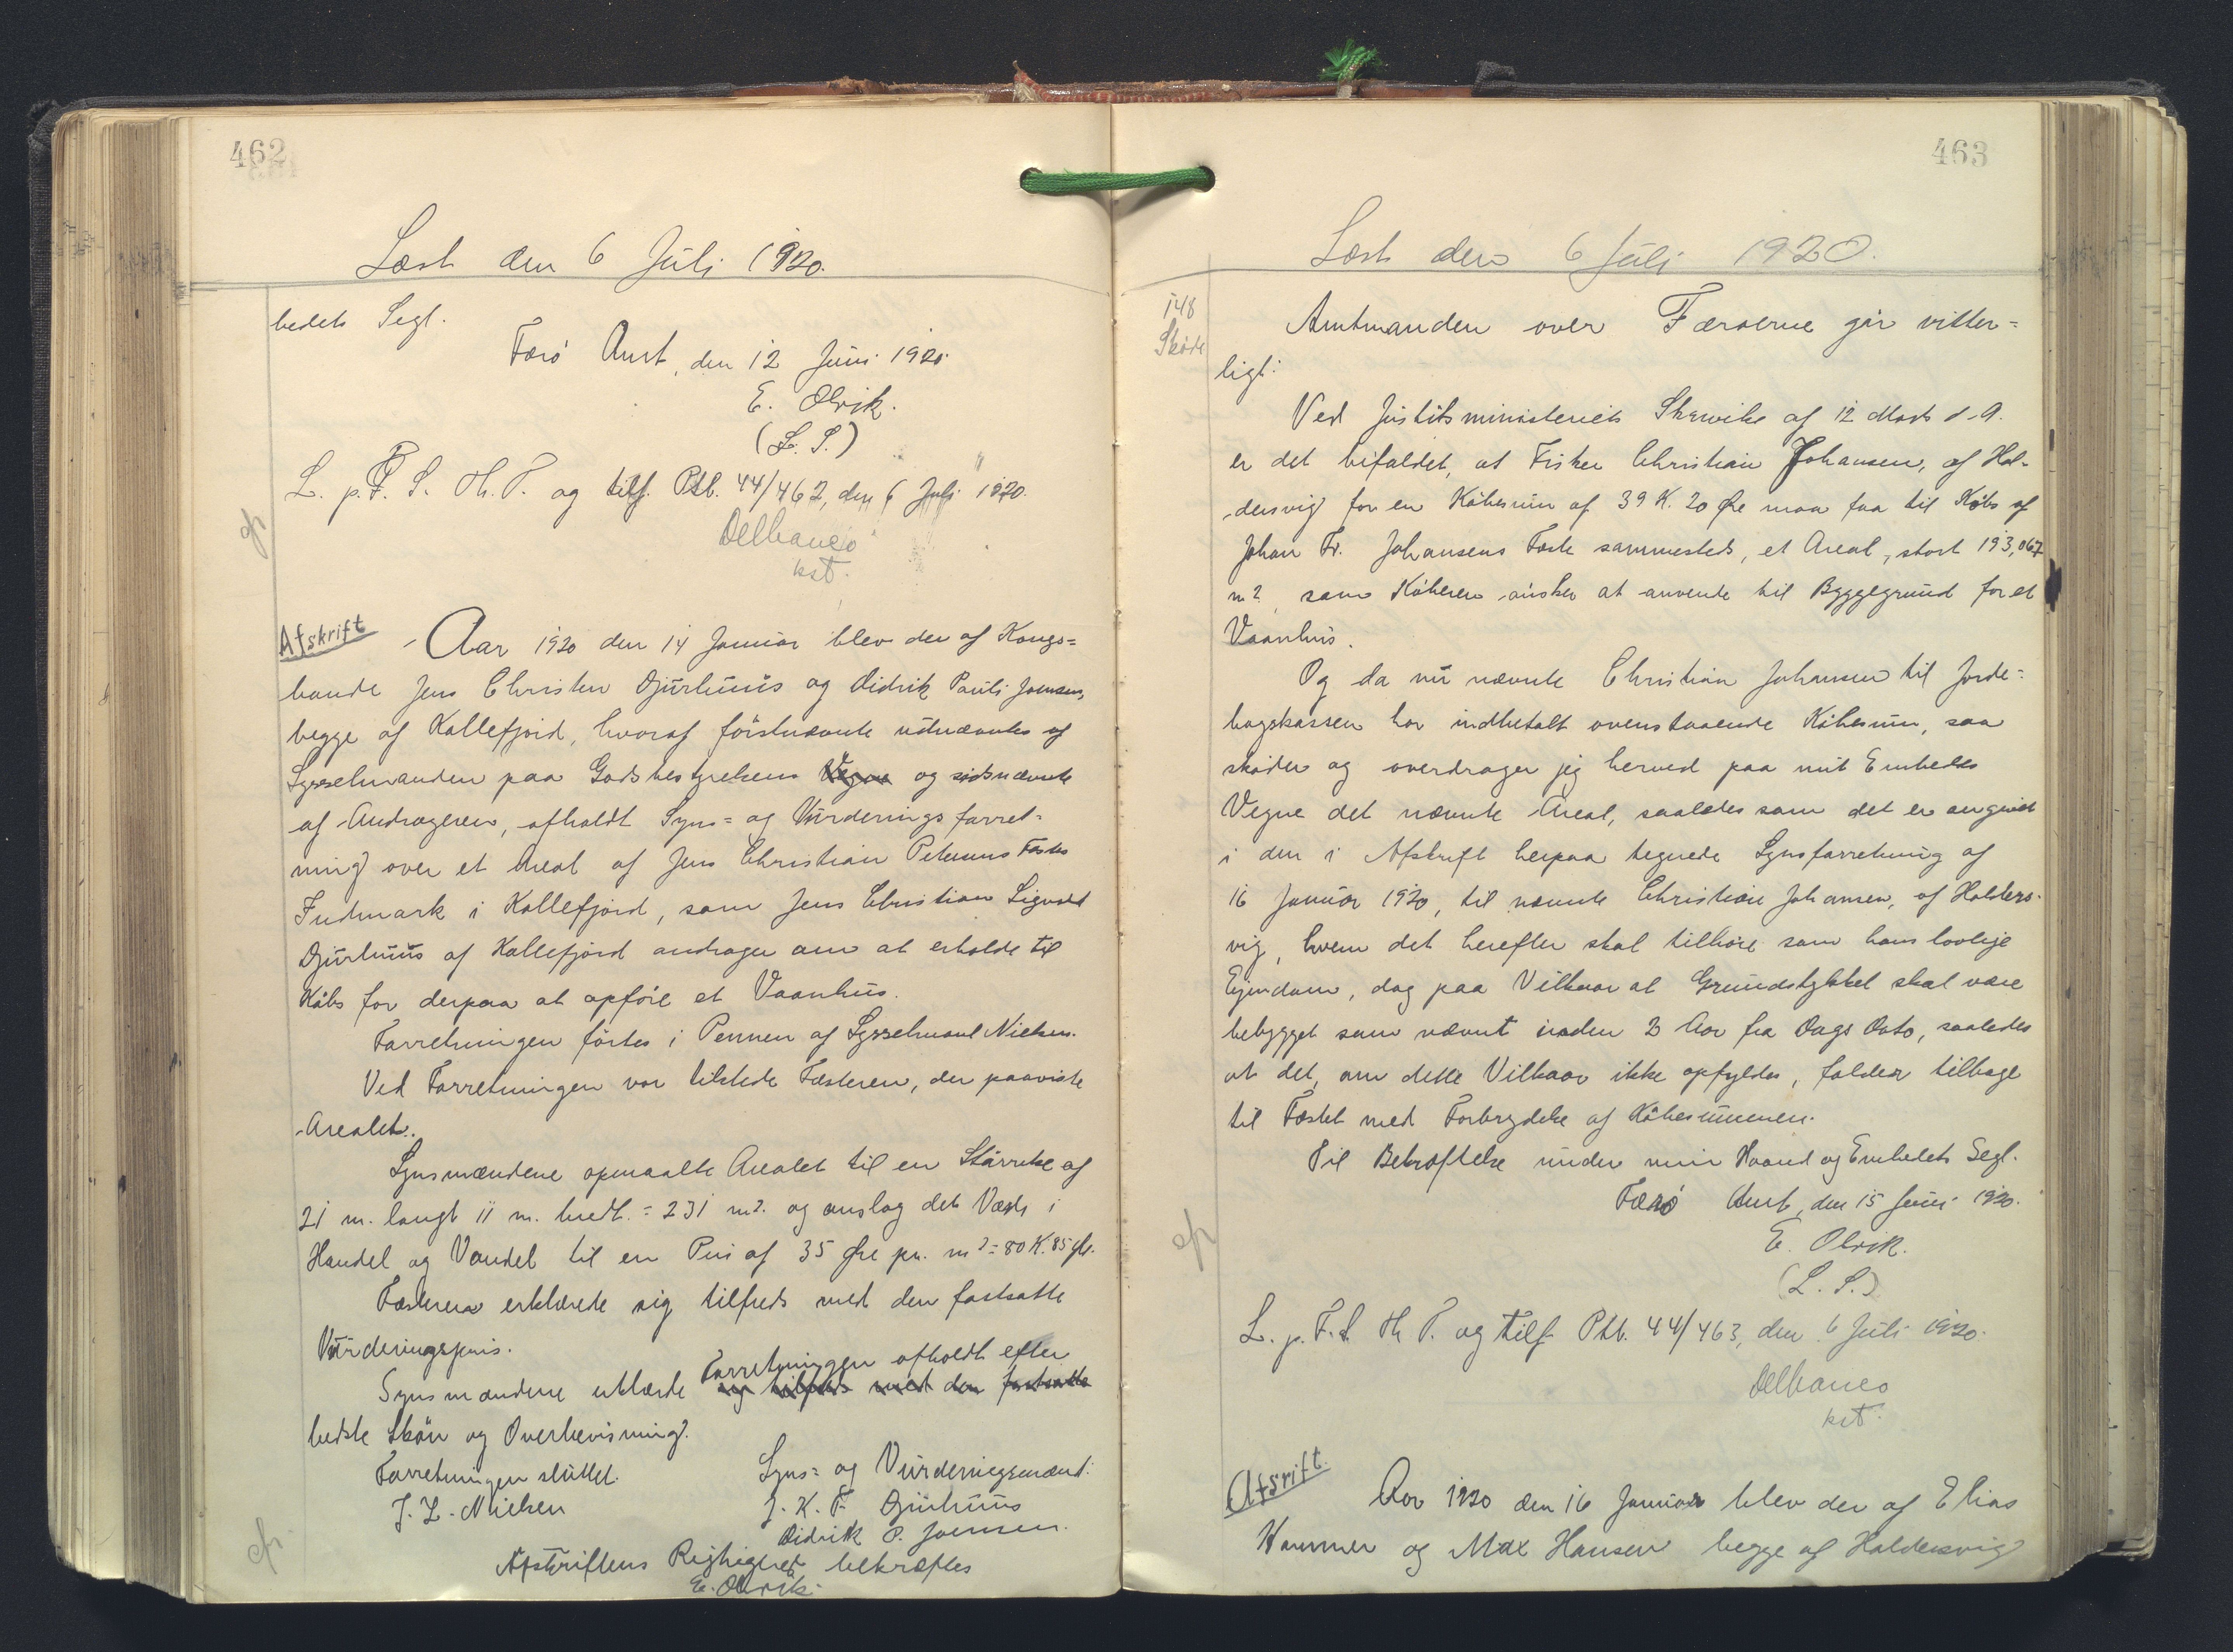 462
Læst den 6 Juli 1920.
bedets Segl.
Færö Amt, den 12 Juni 1920.
E. Olrik.
(L. S.)
L. p. F. S. Th. T. og tilf. Ptb. 44/462, den 6 Juli 1920.
Delbanco
kst.
Afskrift
Aar 1920 den 14 Januar blev der af Kongs=
bonde Jens Christen Djurhuus og Didrik Pauli Joensen,
begge af Kollefjord, hvoraf förstnævnte udnævntes af
Sysselmanden paa Godsbestyrelsens Vegne og sidstnævnte
af Andrageren, afholdt Syns= og Vurderingsforret=
ning over et Areal af Jens Christian Petersens Fæstes
Indmark i Kollefjord, som Jens Christian Sigvald
Djurhuus af Kollefjord andrager om at erholde til
Købs for derpaa at opföre et Vaanhus.
Forretningen förtes i Pennen af Sysselmand Nielsen.
Ved Forretningen var tilstede Fæsteren, der paaviste
Arealet.
Synsmændene opmaalte Arealet til en Störrelse af
21 m. langt 11 m. bredt. = 231 m2. og anslog dets Værdi i
Handel og Vandel til en Pris af 35 Øre pr. m2 = 80 K. 85 Øre.
Fæsteren erklærede sig tilfreds med den fastsatte
Vurderingspris.
Synsmændene erklærede Forretningen afholdt efter
sig tilfreds med den fastsatte
bedste Skön og Overbevisning.
Forretningen sluttet. Syns= og Vurderingsmænd:
J. L. Nielsen J. K. F. Djurhuus
Didrik P. Joensen.
Afskriftens Rigtighed bekræftes
E. Olrik.
463
Læst den 6 Juli 1920.
148
Sköde
Amtmanden over Færøerne gör vitter=
ligt:
Ved Justitsministeriets Skrivelse af 12 Marts d. A.
er det bifaldet, at Fisker Christian Johansen, af Hal-
dersvig for en Købesum af 39 K. 20 Øre maa faa til Købs af
Johan Fr. Johansens Fæste sammesteds, et Areal, stort 193,067
m2, som Køberen önsker at anvende til Byggegrund for et
Vaanhus.
Og da nu nævnte Christian Johansen til Jorde=
bogskassen har indbetalt ovenstaaende Købesum, saa
sköder og overdrager jeg herved paa mit Embedes
Vegne det nævnte Areal, saaledes som det er angivet
i den i Afskrift herpaa tegnede Synsforretning af
16 Januar 1920, til nævnte Christian Johansen, af Halders-
vig, hvem det herefter skal tilhöre som hans lovlige
Ejendom, dog paa Vilkaar at Grundstykket skal være
bebygget som nævnt inden 2 Aar fra Dags Dato, saaledes
at det, om dette Vilkaar ikke opfyldes, falder tilbage
til Fæstet med Forbrydelse af Købesummen.
Til Bekræftelse under min Haand og Embedets Segl.
Færö Amt, den 15 Juni 1920.
E. Olrik.
(L. S.)
L. p. F. S. Th. T. og tilf. Ptb. 44/463, den 6 Juli 1920.
Delbanco
kst.
Afsrift.
Aar 1920 den 16 Januar blev der af Elias
Hammer og Max Hansen begge af Haldersvig